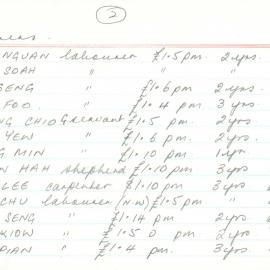 2
NGUAN labourer £1.5 pm. 2 yrs.
SOAH " " "
SENG " £1.6 pm 2 yrs.
FOO. " £1.4 pm 3 yrs.
NG CHIO G.servant £1.5 pm. 2 yrs
YEW " £1.6 pm. 2 yrs.
G MIN " £1.10 pm 1 yr.
N HAH shepherd £1.10 pm 3 yrs
LEE carpenter £1.10 pm 3 yrs
CHU labourer (N.W) £1.5 pm "
SENG " £1.14 pm 2 yrs
KIOW " £1.5.0 pm 2 yrs
PIAN " £1.4 pm. 3 yrs.